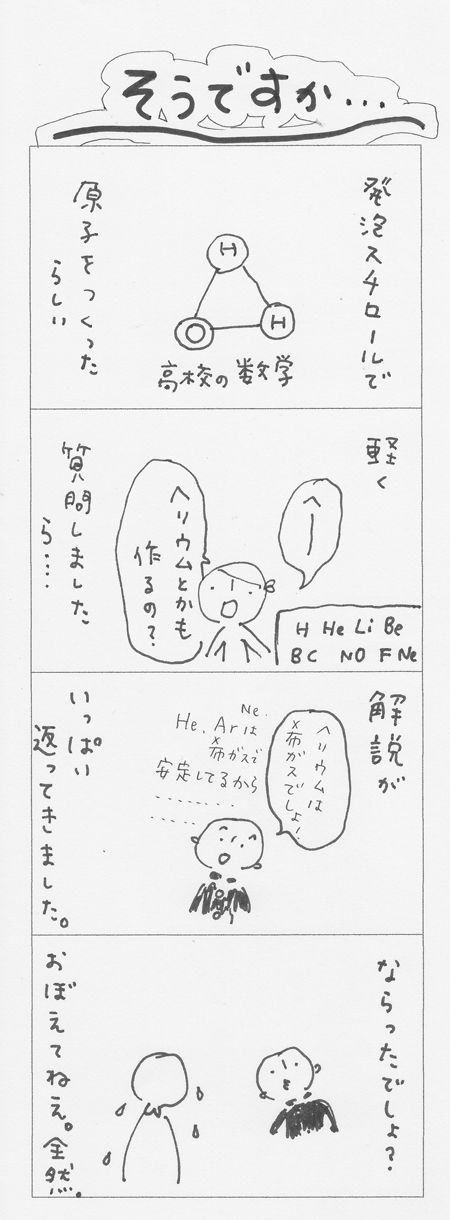 そうですか…
発泡スチロールで
原子をつくった
らしい
H
O H
高校の数学
軽く
へー
ヘリウムとかも
作るの?
質問しました
ら….
H He Li Be
B C N O F Ne
解説が
ヘリウムは
希ガスでしょ!
Ne.
He. Arは
希ガスで
安定してるから
........
.....
いっぱい
返ってきました。
ならったでしょ?
おぼえてねえ。全然。